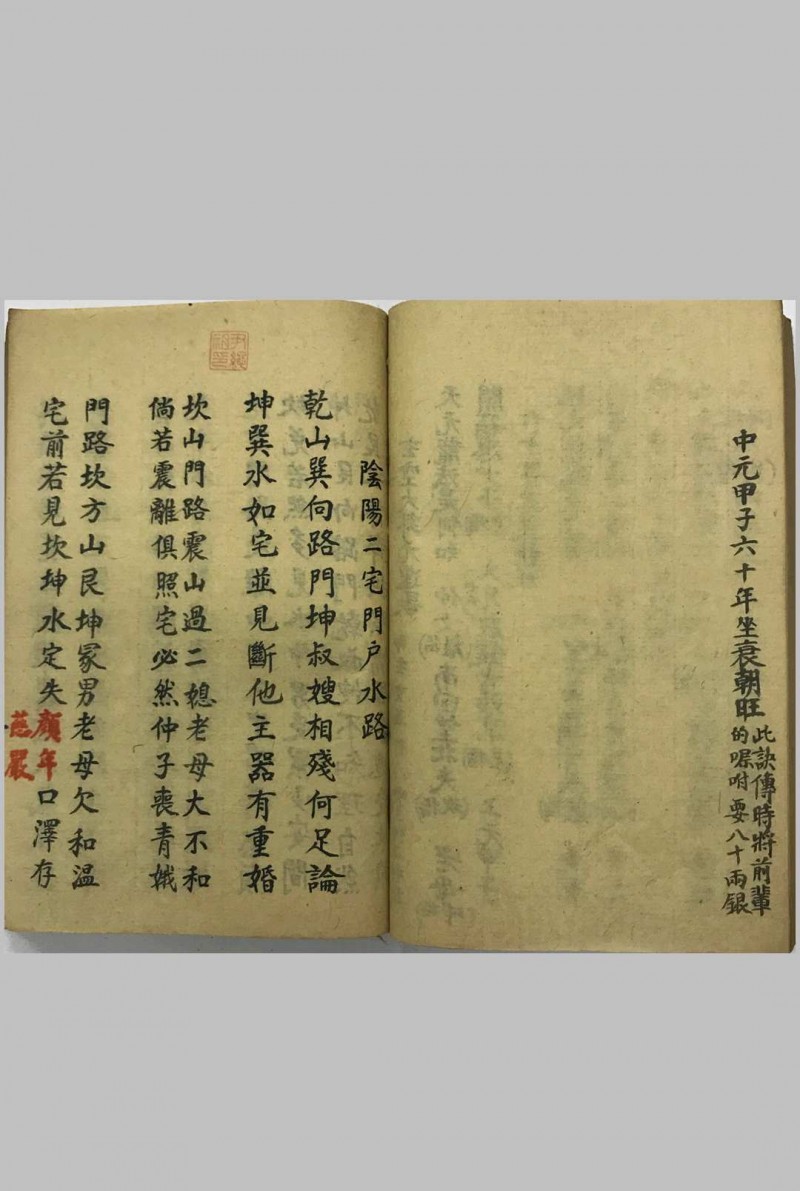 中元甲子六十年坐衰朝旺
此訣傳時將前輩
的囑咐要八十兩銀
陰陽二宅門户水路
乾山巽向路門坤叔嫂相殘何足論
坤巽水如宅並見斷他主器有重婚
坎山門路震山過二媳老母大不和
倘若震離俱照宅必然仲子喪青娥
門路坎方山艮坤冢男老母欠和温
宅前若見坎坤水定失口澤存
顏年
慈嚴